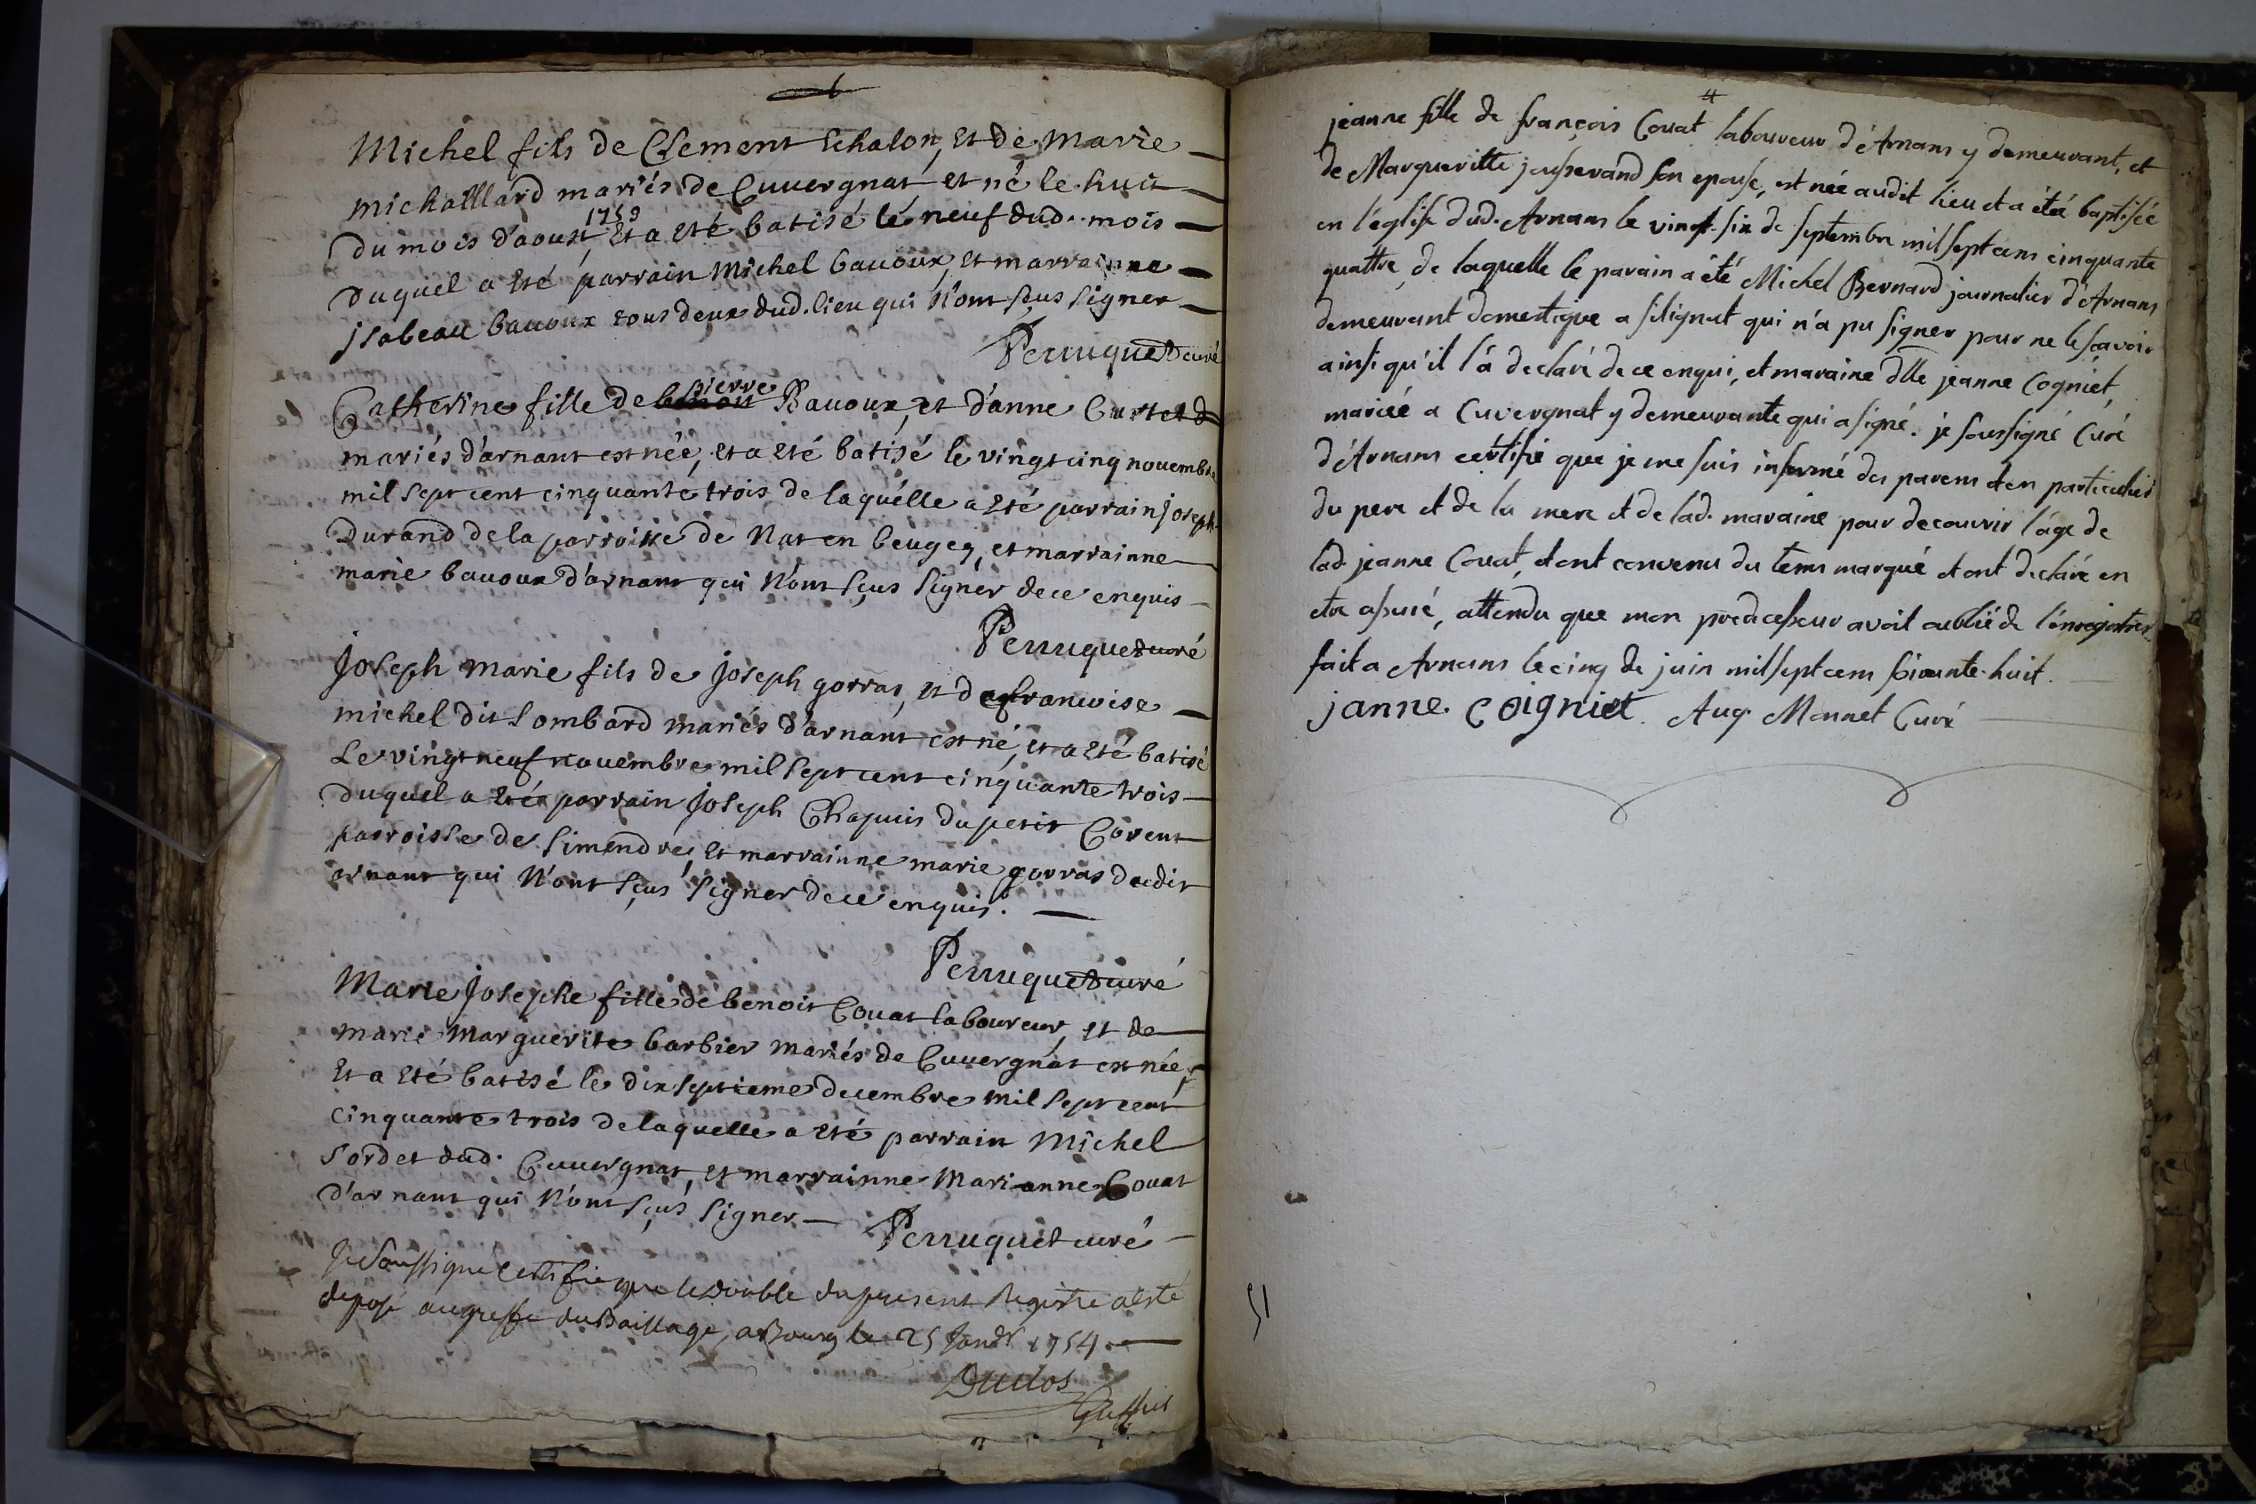 Michel fils de Clement Echalon, et de Marie
michaillard mariés de Cuvergnat et né le huit
du mois d'aoust, 1753 et a eté batisé le neuf dud. mois
duquel a eté parrain Michel bavoux, et marrainne
jsabeau bavoux tous deux dud. lieu qui N'ont sçus signer
Perruquet curé
Catherine fille de pierre Bavoux, et d'anne Curtet
mariés d'arnant est née, et a eté batisé le vingt cinq novembre
mil sept cent cinquante trois de laquélle a eté parrain joseph
Durand de la parroisse de Nat en beugeq, et marrainne
marie bavoux d'arnant qui N'ont sçus signer de ce enquis
Perruquet curé
Joseph marie fils de Joseph gorras, et de francoise
michel dit Lombard mariés d'arnant est né, et a eté batisé
Le vingt neuf novembre mil sept cent cinquante trois
duquel a eté parrain Joseph Chapuis du petit Corent
parroisse de Simendre, et marrainne marie gorras dudit
arnant qui N'ont sçus signer de ce enquis.
Perruquet curé
Marie Josephe fille de benoit Couat laboureur, et de
marie Marguerite barbier mariés de Cuvergnat est née,
et a eté batisé le dix septieme decembre mil sept cent
cinquante trois de laquelle a eté parrain Michel
Sordet dud. Cuvergnat, et marrainne Marianne Couat
d'arnant qui N'ont sçus signer
Perruquet curé
Je soussigné certifie que le double du present Registre a esté
deposé au greffe du Baillage, a Bourg le 25 Janvr 1754.
Duclos
jeanne fille de françois Couat laboureur d'Arnans y demeurant, et
de Margueritte jousserand son epouse, est née audit lieu et a été baptisée
en l'eglise dud. Arnans le vingt-six de septembre mil sept cens cinquante
quattre, de laquelle le parain a été Michel Bernard journalier d'Arnans
demeurant domestique a silignat qui n'a pu signer pour ne le sçavoir
ainsi qu'il l'a declaré de ce enqui, et maraine dlle jeanne Cogniet,
mariée a Cuvergnat y demeurante qui a signé. je soussigné Curé
d'Arnans certifie que je me suis informé des parens et en particulier
du pere et de la mere et de lad. maraine pour decouvrir l'age de
lad. jeanne Couat, et ont convenu du tems marqué et ont declaré en
etre assuré, attendu que mon predecesseur avoit oublié de l'enregistrer.
fait a Arnans le cinq de juin mil sept cens soixante-huit.
janne. coigniet. Aug. Monnet Curé
51